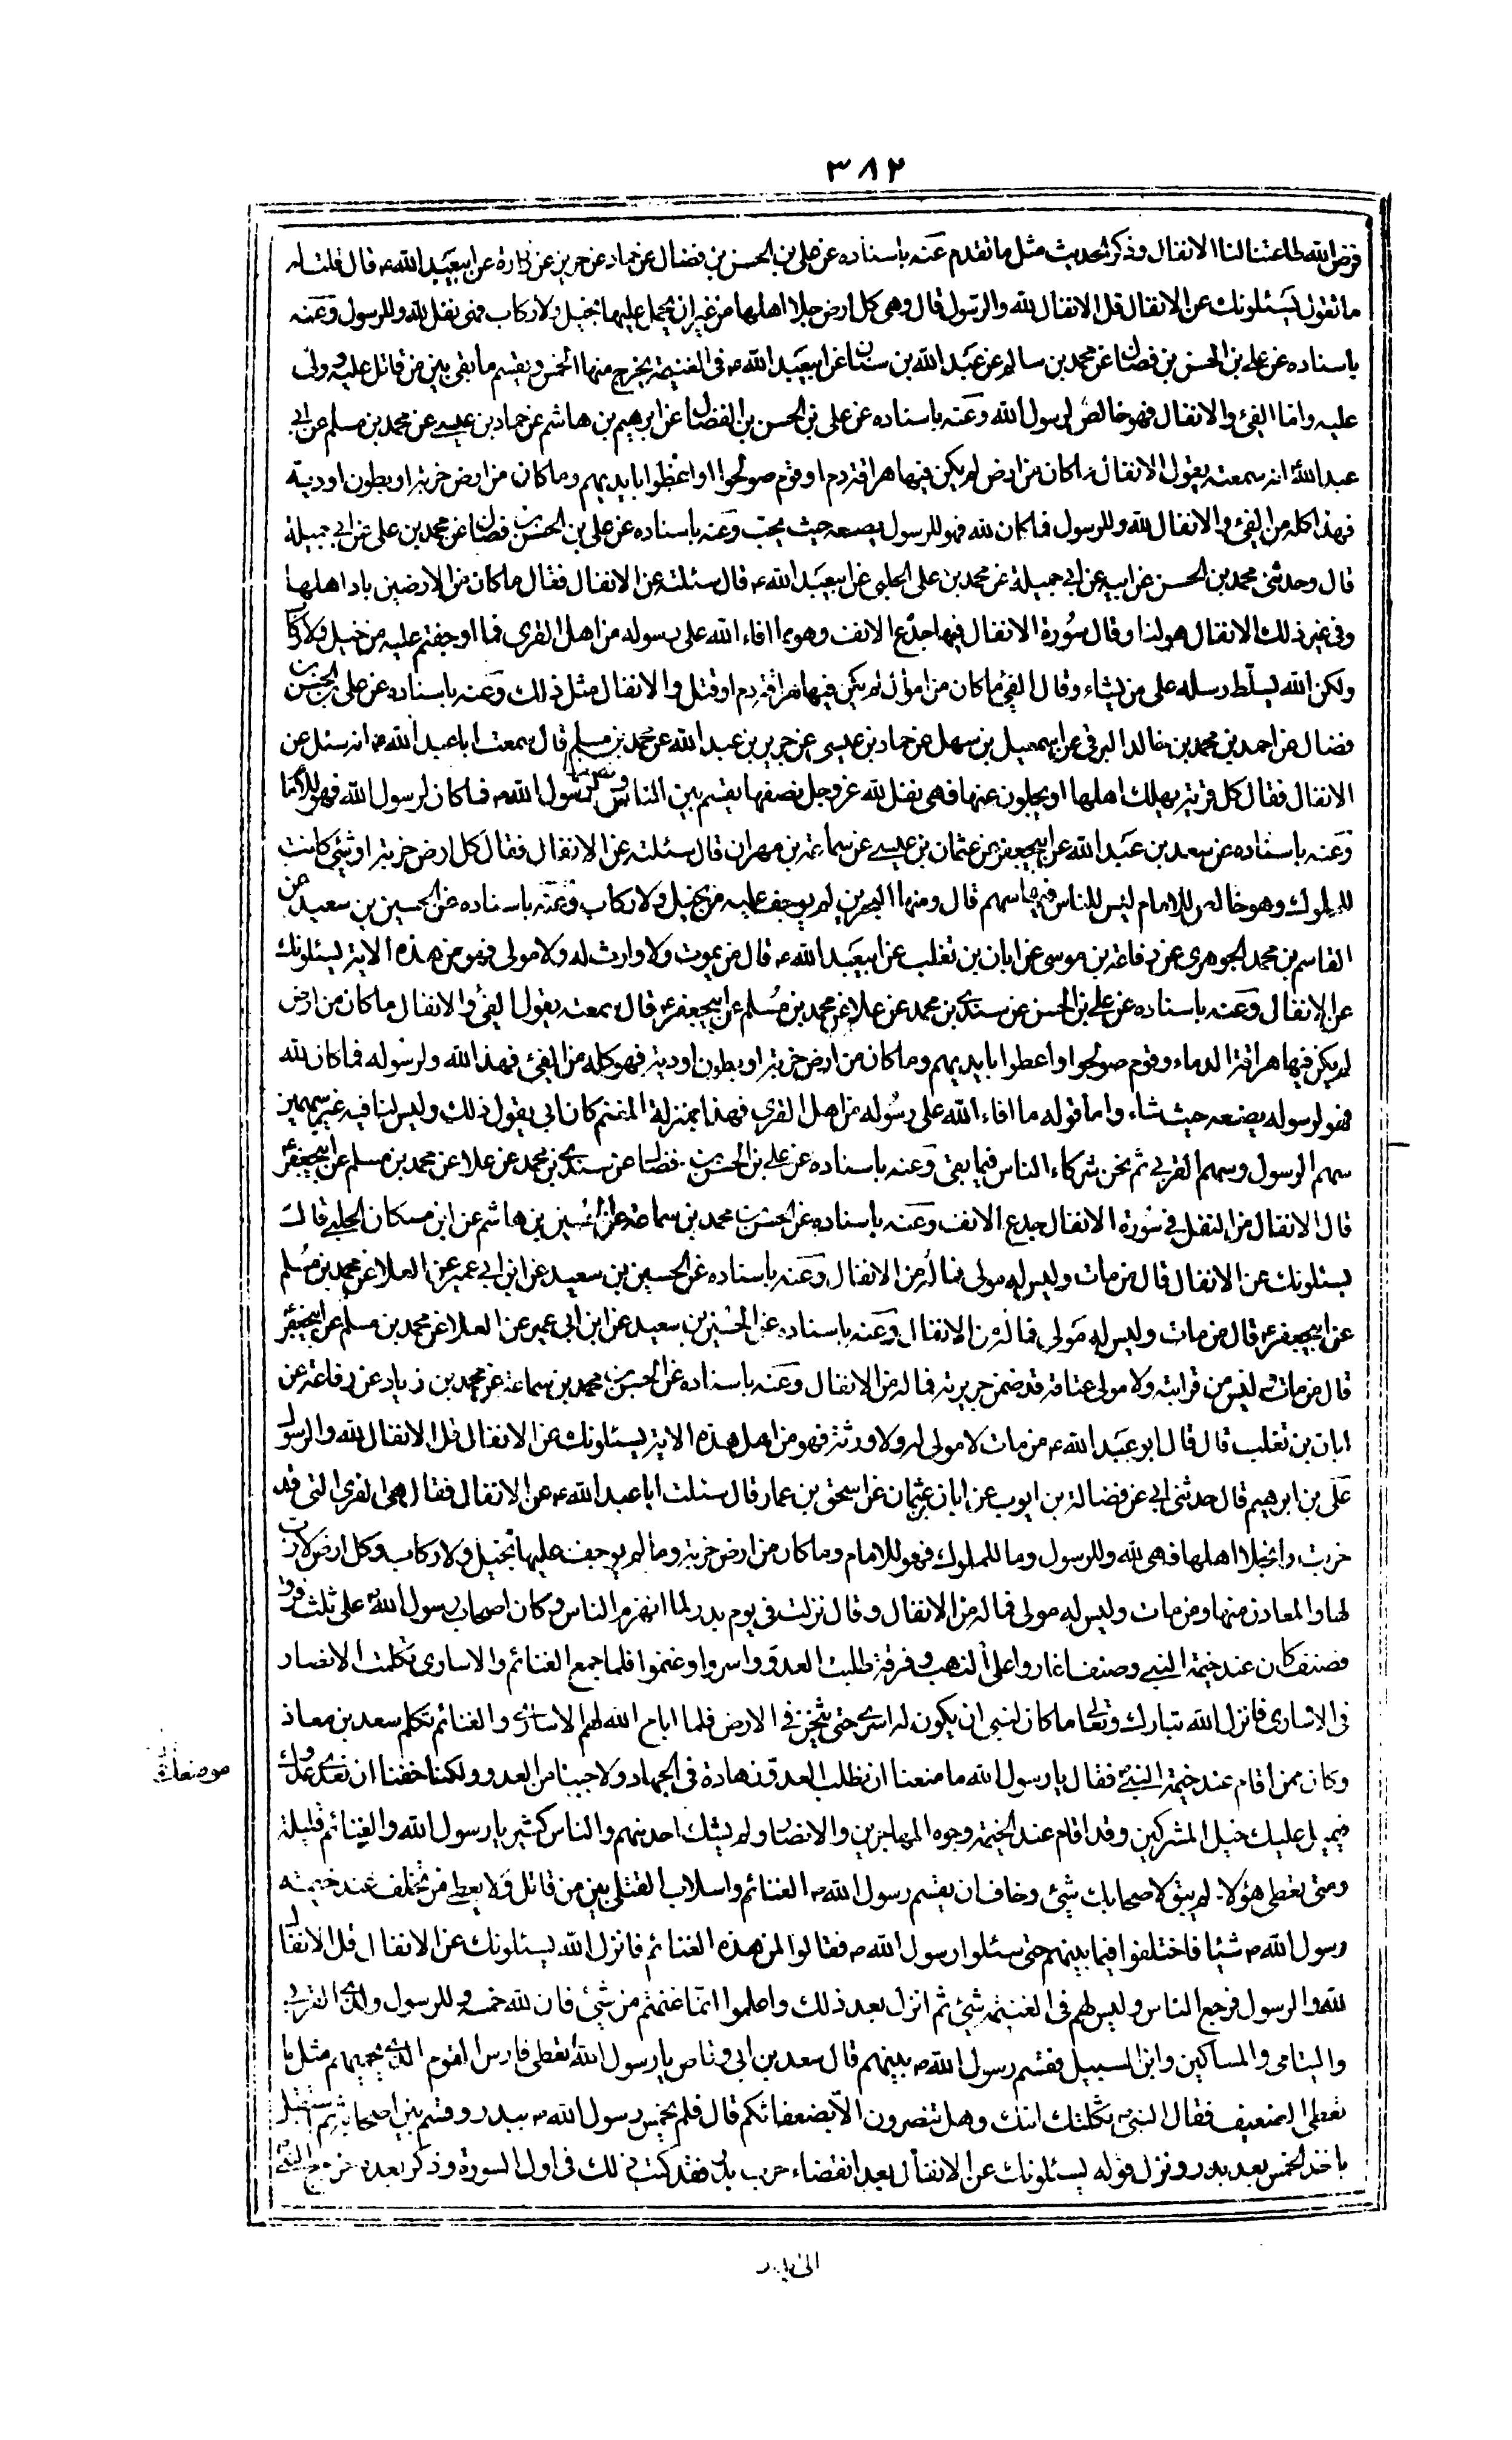 ٣٨٢
فرض الله طاعتنا لنا الانفال وذكر الحديث مثل ما تقدم عنه باسناده عن على بن الحسن بن فضال عن حماد عن حريز عن زرارة عن ابيعبد الله ع قال قلت له
ما تقول يسئلونك عن الانفال قل الانفال لله والرسول قال وهى كل ارض جلا اهلها من غير ان يحمل عليها بخيل ولا ركاب فهى نفل لله وللرسول وعنه
باسناده عن على بن الحسن بن فضال عن محمد بن سالم عن عبد الله بن سنان عن ابيعبد الله ع فى الغنيمة يخرج منها الخمس ويقسم ما بقى بين من قاتل عليه وولى
عليه واما الفئ والانفال فهو خالص لرسول الله وعنه باسناده عن على بن الحسن بن الفضال عن ابرهيم بن هاشم عن حماد بن عيسى عن محمد بن مسلم عن ابى
عبد الله انه سمعته يقول الانفال ما كان من ارض لم يكن فيها هراقة دم او قوم صولحوا او اعطوا بايديهم وما كان من ارض خربة او بطون اودية
فهذا كله من الفئ والانفال لله وللرسول فما كان لله فهو للرسول يضعه حيث يحب وعنه باسناده عن على بن الحسن بن فضال عن محمد بن على عن ابى جميلة
قال وحدثنى محمد بن الحسن عن ابيه عن ابى جميلة عن محمد بن على الحلبى عن ابيعبد الله ع قال سئلته عن الانفال فقال ما كان من الارضين باد اهلها
وفى غير ذلك الانفال هو لنا وقال سورة الانفال فيها جدع الانف وهو ما افاء الله على رسوله من اهل القرى فما اوجفتم عليه من خيل ولا ركاب
ولكن الله يسلط رسله على من يشاء وقال الفئ ما كان من اموال لم يكن فيها هراقة دم او قتل والانفال مثل ذلك وعنه باسناده عن على بن الحسن بن
فضال عن احمد بن محمد بن خالد البرقى عن اسمعيل بن سهل عن حماد بن عيسى عن حريز بن عبد الله عن محمد بن مسلم قال سمعت ابا عبد الله ع انه سئل عن
الانفال فقال كل قرية يهلك اهلها او يجلون عنها فهى نفل لله عز وجل نصفها يقسم بين الناس ونصفها لرسول الله ص فما كان لرسول الله فهو للامام
وعنه باسناده عن سعد بن عبد الله عن ابيجعفر عن عثمان بن عيسى عن سماعة بن مهران قال سئلته عن الانفال فقال كل ارض خربة او شئ كانت
للملوك وهو خالص للامام ليس للناس فيها سهم قال ومنها البحرين لم يوجف عليه من بخيل ولا ركاب وعنه باسناده عن الحسين بن سعيد عن
القاسم بن محمد الجوهرى عن رفاعة بن موسى عن ابان بن تغلب عن ابيعبد الله ع قال من يموت ولا وارث له ولا مولى فهو من هذه الاية يسئلونك
عن الانفال وعنه باسناده عن على بن الحسن عن سندى بن محمد عن علا عن محمد بن مسلم عن ابيجعفر ع قال سمعته يقول الفئ والانفال ما كان من ارض
لم يكن فيها هراقة الدماء وقوم صولحوا واعطوا بايديهم وما كان من ارض خربة او بطون اودية فهو كله من الفئ فهذا لله ولرسوله فما كان لله
فهو لرسوله يضعه حيث شاء واما قوله ما افاء الله على رسوله من اهل القرى فهذا بمنزلة المغنم كان ابى يقول ذلك وليس لنا فيه غير سهمين
سهم الرسول وسهم القربى ثم نحن شركاء الناس فيما بقى وعنه باسناده عن على بن الحسن بن فضال عن سندى بن محمد عن علا عن محمد بن مسلم عن ابيجعفر ع
قال الانفال من النفل فى سورة الانفال جدع الانف وعنه باسناده عن الحسن بن محمد بن سماعة عن الحسين بن هاشم عن ابن مسكان الحلبى قال
يسئلونك عن الانفال قال من مات وليس له مولى فماله من الانفال وعنه باسناده عن الحسين بن سعيد عن ابن ابى عمير عن العلا عن محمد بن مسلم
عن ابيجعفر ع قال من مات وليس له مولى فماله من الانفال وعنه باسناده عن الحسين بن سعيد عن ابن ابى عمير عن العلا عن محمد بن مسلم عن ابيجعفر
قال من مات ليس من قرابته ولا مولى عتاقة قد ضمن جريرته فماله من الانفال وعنه باسناده عن الحسن بن محمد بن سماعة عن محمد بن زياد عن رفاعة عن
ابان بن تغلب قال قال ابو عبد الله ع من مات لا مولى له ولا ورثة فهو من اهل هذه الاية يسئلونك عن الانفال قل الانفال لله والرسول
على بن ابرهيم قال حدثنى ابى عن فضالة بن ايوب عن ابان بن عثمان عن اسحق بن عمار قال سئلت ابا عبد الله ع عن الانفال فقال هى القرى التى قد
خربت وانجلا اهلها فهى لله وللرسول وما للملوك فهو للامام وما كان من ارض خربة وما لم يوجف عليها بخيل ولا ركاب وكل ارض لا رب
لها والمعادن منها ومن مات وليس له مولى فماله من الانفال وقال نزلت فى يوم بدر لما انهزم الناس وكان اصحاب رسول الله على ثلث فرق
فصنف كان عند خيمة النبى وصنف اغاروا على النهب وفرقة طلبت العدو واسروا وغنموا فلما جمع الغنائم والاسارى تكلمت الانصار
فى الاسارى فانزل الله تبارك وتعالى ما كان لنبى ان يكون له اسرى حتى يثخن فى الارض فلما اباح الله لهم الاسارى والغنائم تكلم سعد بن معاذ
وكان ممن اقام عند خيمة النبى فقال يا رسول الله ما منعنا ان نطلب العدو زهادة فى الجهاد ولا جبنا من العدو ولكنا خفنا ان نعدى
فيميل عليك خيل المشركين وقد اقام عند الخيمة وجوه المهاجرين والانصار ولم يشك احد منهم والناس كثير يا رسول الله والغنائم قليلة
ومتى يعطى هؤلاء لم يبق لاصحابك شئ وخاف ان يقسم رسول الله ص الغنائم واسلاب القتلى بين من قاتل ولا يعطى من تخلف عند خيمته
رسول الله ص شيئا فاختلفوا فيما بينهم حتى سئلوا رسول الله ص فقالوا لمن هذه الغنائم فانزل الله يسئلونك عن الانفال قل الانفال
لله والرسول فرجع الناس وليس لهم فى الغنيمة شئ ثم انزل بعد ذلك واعلموا انما غنمتم من شئ فان لله خمسه وللرسول ولذى القربى
واليتامى والمساكين وابن السبيل فقسم رسول الله ص بينهم قال سعد بن ابى وقاص يا رسول الله تعطى فارس القوم الذى يحميهم مثل ما
تعطى الضعيف فقال النبى ص ثكلتك امك وهل تنصرون الا بضعفائكم قال فلم يخمس رسول الله ص ببدر وقسم بين اصحابه ثم استقبل
ياخذ الخمس بعد بدر ونزل قوله يسئلونك عن الانفال بعد انقضاء حرب بدر فقد كتب ذلك فى اول السورة وذكر بعده خروج النبى